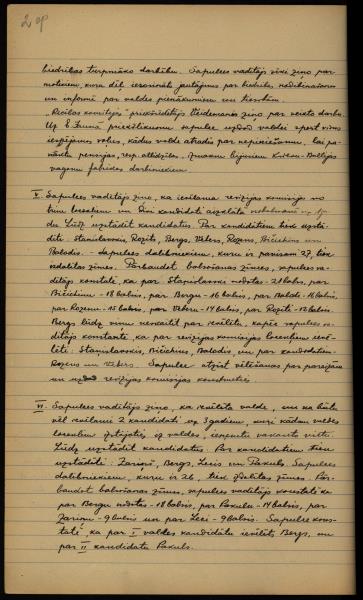 biedrības turpmāko darbību. Sapulces vadītājs sīki ziņo par
motīviem, kuru dēļ ierosināti jautājums par biedrības
un informē par valdes pienākumiem un tiesībām.
"Rīcības komitejas" priekšsēdētājs Veidemanis ziņo par veikto darbu.
Uz E. priekšlikumu sapulce uzdod valdei spert visus
iespējamos soļus, kādus valde atradīs par nepieciešamu, lai pa-
nāktu pensijas, resp. atlīdzības, izmaksu bijušiem Krievu-Baltijas
vagonu fabrikas darbiniekiem.
V. Sapulces vadītājs ziņo, ka ievēlama revīzijas komisija no
trim locekļiem un divi kandidāti
du. Lūdz uzstādīt kandidātus. Par kandidātiem tiek uzstā-
dīti: Stanislavskis, Rozīts, Bergs, Vēbers, Rozens, Bičickins un
Balodis. - Sapulces dalībniekiem, kuru ir pavisam 27, tiek
izdalītas zīmes. Pārbaudot balsošanas zīmes, sapulces va-
dītājs konstatē, ka par Stanislavski nodotas - 21 balss, par
Bičickinu - 18 balsis, par Bergu - 16 balsis, par Balodi - 16 balsis,
par Rozenu - 15 balsis, par Vēberu - 14 balsis, par Rozīti - 12 balsis.
Bergs lūdz viņu neskaitīt par ievēlētu, kāpēc sapulces va-
dītājs konstatē, ka par revīzijas komisijas locekļiem ievē-
lēti: Staņislavskis, Bičickins, Balodis, un par kandidātiem -
Rozens un Vēbers. Sapulce atzīst vēlēšanas par pareizām
un uzdod revīzijas komisijai konstruēties.
VI. Sapulces vadītājs ziņo, ka ievēlēta valde, un ka būtu
vēl ievēlami 2 kandidāti uz 3 gadiem, kuri kādam valdes
loceklim izstājoties no valdes, ieņemtu vakanto vietu.
Lūdz uzstādīt kandidātus. Par kandidātiem tiek
uzstādīti: Zariņš, Bergs, Lecis un Pakuls. Sapulces
dalībniekiem, kuru ir 26, tiek izdalītas zīmes. Pār-
baudot balsošanas zīmes, sapulces vadītājs konstatē, ka
par Bergu nodotas - 18 balsis, par Pakulu - 14 balsis, par
Zariņu - 9 balsis un par Leci - 9 balsis. Sapulce kons-
tatē, ka par I valdes kandidātu ievēlēts Bergs, un
par II kandidātu Pakuls.